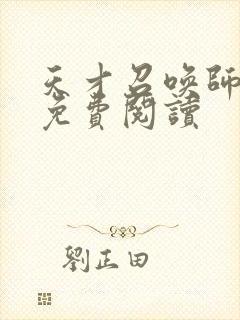 天才召喚師
免費閱讀
劉正田